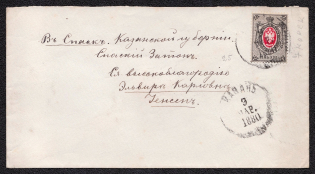 Въ Спасскъ. Казанской губерніи.
Спасскій Затонъ.
Ея высокоблагородію
Эльвирѣ Карловнѣ
Іенсенъ.
КАЗАНЬ
9
МАР.
1880